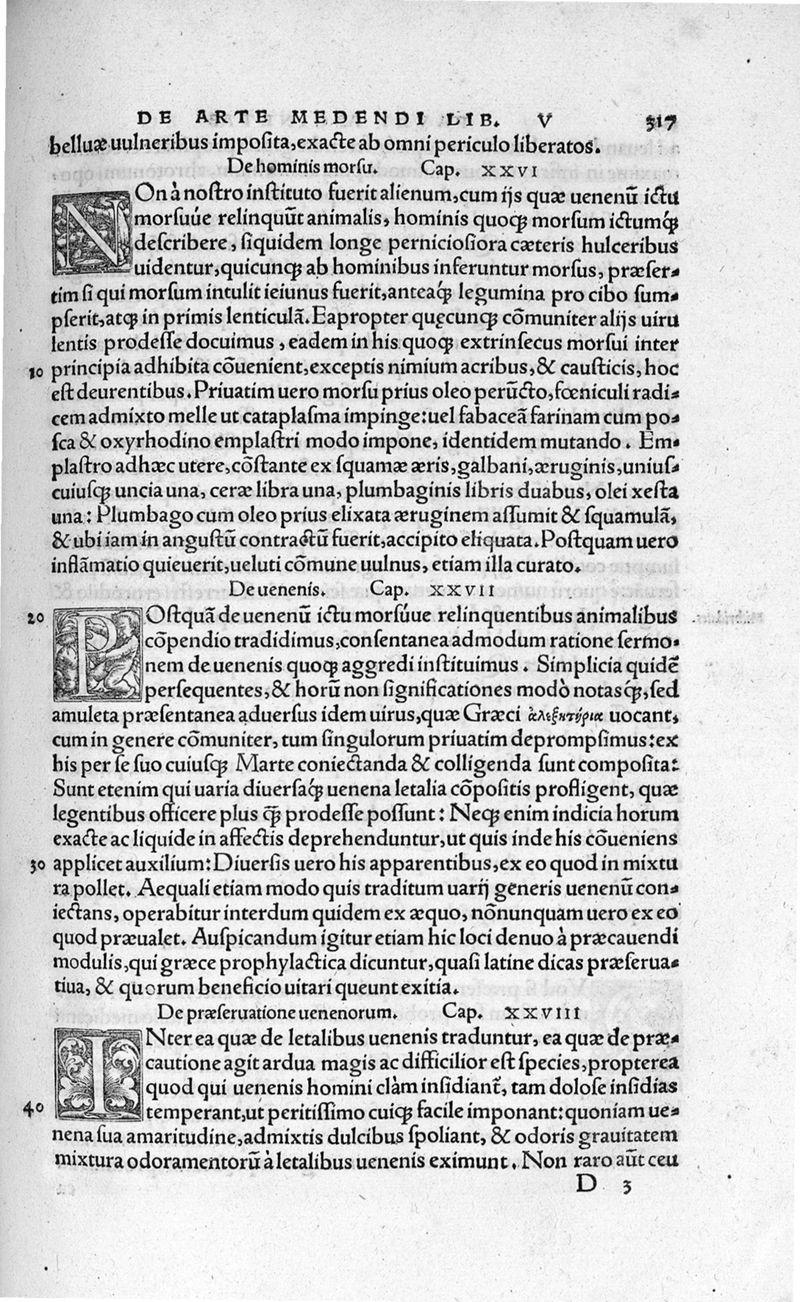 DE ARTE MEDENDI LIB. V 317
belluæ uulneribus imposita, exacte ab omni periculo liberatos.
De hominis morsu. Cap. XXVI
NOn à nostro instituto fuerit alienum, cum ijs quæ uenenũ ictu
morsuúe relinquũt animalis, hominis quoq; morsum ictumq́;
describere, siquidem longe perniciosiora cæteris hulceribus
uidentur, quicunq; ab hominibus inferuntur morsus, præser-
tim si qui morsum intulit ieiunus fuerit, anteaq́; legumina pro cibo sum-
pserit, atq; in primis lenticulã. Eapropter quęcunq; cõmuniter alijs uiru
lentis prodesse docuimus, eadem in his quoq; extrinsecus morsui inter
10 principia adhibita cõuenient, exceptis nimium acribus, & causticis, hoc
est deurentibus. Priuatim uero morsu prius oleo perũcto, fœniculi radi-
cem admixto melle ut cataplasma impinge: uel fabaceã farinam cum po-
sca & oxyrhodino emplastri modo impone, identidem mutando. Em-
plastro adhæc utere, cõstante ex squamæ æris, galbani, æruginis, unius-
cuiusq; uncia una, ceræ libra una, plumbaginis libris duabus, olei xesta
una: Plumbago cum oleo prius elixata æruginem assumit & squamulã,
& ubi iam in angustũ contractũ fuerit, accipito eliquata. Postquam uero
inflãmatio quieuerit, ueluti cõmune uulnus, etiam illa curato.
De uenenis. Cap. XXVII
20 POstquã de uenenũ ictu morsúue relinquentibus animalibus
cõpendio tradidimus, consentanea admodum ratione sermo-
nem de uenenis quoq; aggredi instituimus. Simplicia quidẽ
persequentes, & horũ non significationes modò notasq́;, sed
amuleta præsentanea aduersus idem uirus, quæ Græci ἀλεξητήρια uocant,
cum in genere cõmuniter, tum singulorum priuatim deprompsimus: ex
his per se suo cuiusq; Marte coniectanda & colligenda sunt composita:
Sunt etenim qui uaria diuersaq́; uenena letalia cõpositis profligent, quæ
legentibus officere plus q̃; prodesse possunt: Neq; enim indicia horum
exacte ac liquide in affectis deprehenduntur, ut quis inde his cõueniens
30 applicet auxilium: Diuersis uero his apparentibus, ex eo quod in mixtu
ra pollet. Aequali etiam modo quis traditum uarij generis uenenũ con-
iectans, operabitur interdum quidem ex æquo, nõnunquam uero ex eo
quod præualet. Auspicandum igitur etiam hic loci denuo à præcauendi
modulis, qui græce prophylactica dicuntur, quasi latine dicas præserua-
tiua, & quorum beneficio uitari queunt exitia.
De præseruatione uenenorum. Cap. XXVIII
INter ea quæ de letalibus uenenis traduntur, ea quæ de præ-
cautione agit ardua magis ac difficilior est species, propterea
quod qui uenenis homini clàm insidiant᷑, tam dolose insidias
40 temperant, ut peritissimo cuiq; facile imponant: quoniam ue-
nena sua amaritudine, admixtis dulcibus spoliant, & odoris grauitatem
mixtura odoramentorũ à letalibus uenenis eximunt. Non raro aũt ceu
D 3